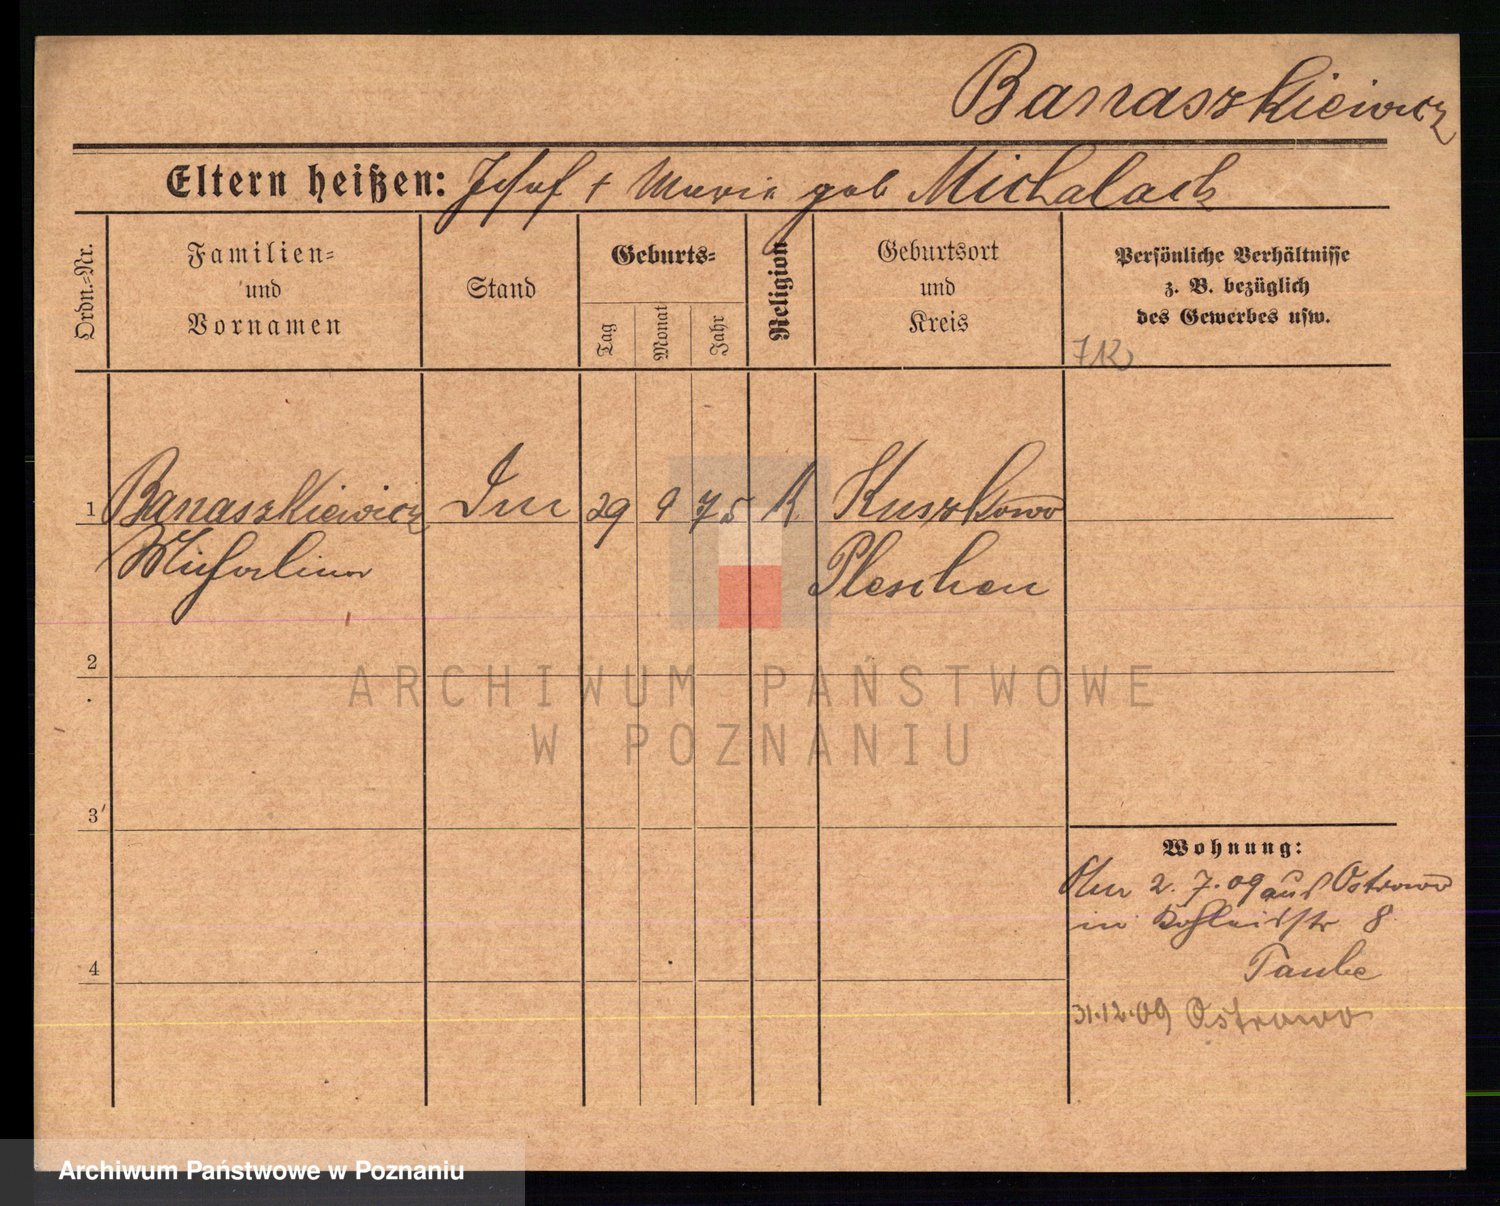 Banaszkiewicz
Eltern heißen: Josef + Marie geb Michalack
Ordn.-Nr.
Familien-
und
Vornamen
Stand
Geburts-
Tag
Monat
Jahr
Religion
Geburtsort
und
Kreis
Persönliche Verhältnisse
z. B. bezüglich
des Gewerbes usw.
1 Banaszkiewicz 29 9 75 K Kuszkowo
Michalina Pleschen
2
3
4
Wohnung:
2. 7. 09 aus Ostrowo
in 8
Taube
31.12.09 Ostrowo
ARCHIWUM PAŃSTWOWE
W POZNANIU
Archiwum Państwowe w Poznaniu